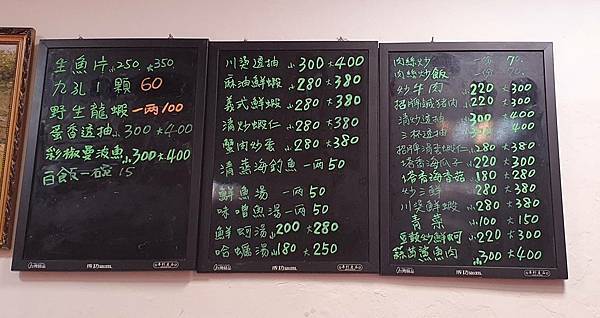 生魚片 小250 大350
九孔1顆 60
野生龍蝦 一兩100
蛋香透抽 小300 大400
彩椒曼波魚 小300 大400
白飯一碗 15
川燙透抽 小300 大400
麻油鮮蝦 小280 大380
義式鮮蝦 小280 大380
清炒蝦仁 小280 大380
蟹肉炒蛋 小280 大380
清蒸海釣魚 一兩50
鮮魚湯 一兩50
味噌魚湯 一兩50
鮮蚵湯 小200 大280
哈蠣湯 小180 大250
肉絲炒 一份 70
肉絲炒飯 一份 70
炒牛肉 小220 大300
招牌鹹豬肉 小220 大300
清炒透抽 小300 大400
三杯透抽 小300 大400
招牌清蒸蝦仁 小280 大380
塔香海瓜子 小220 大300
塔香海香菇 小180 大280
炒三鮮 小280 大380
川燙鮮蝦 小280 大380
青菜 小100 大150
豆鼓炒鮮蚵 小220 大300
蒜苗鯊魚肉 小300 大400